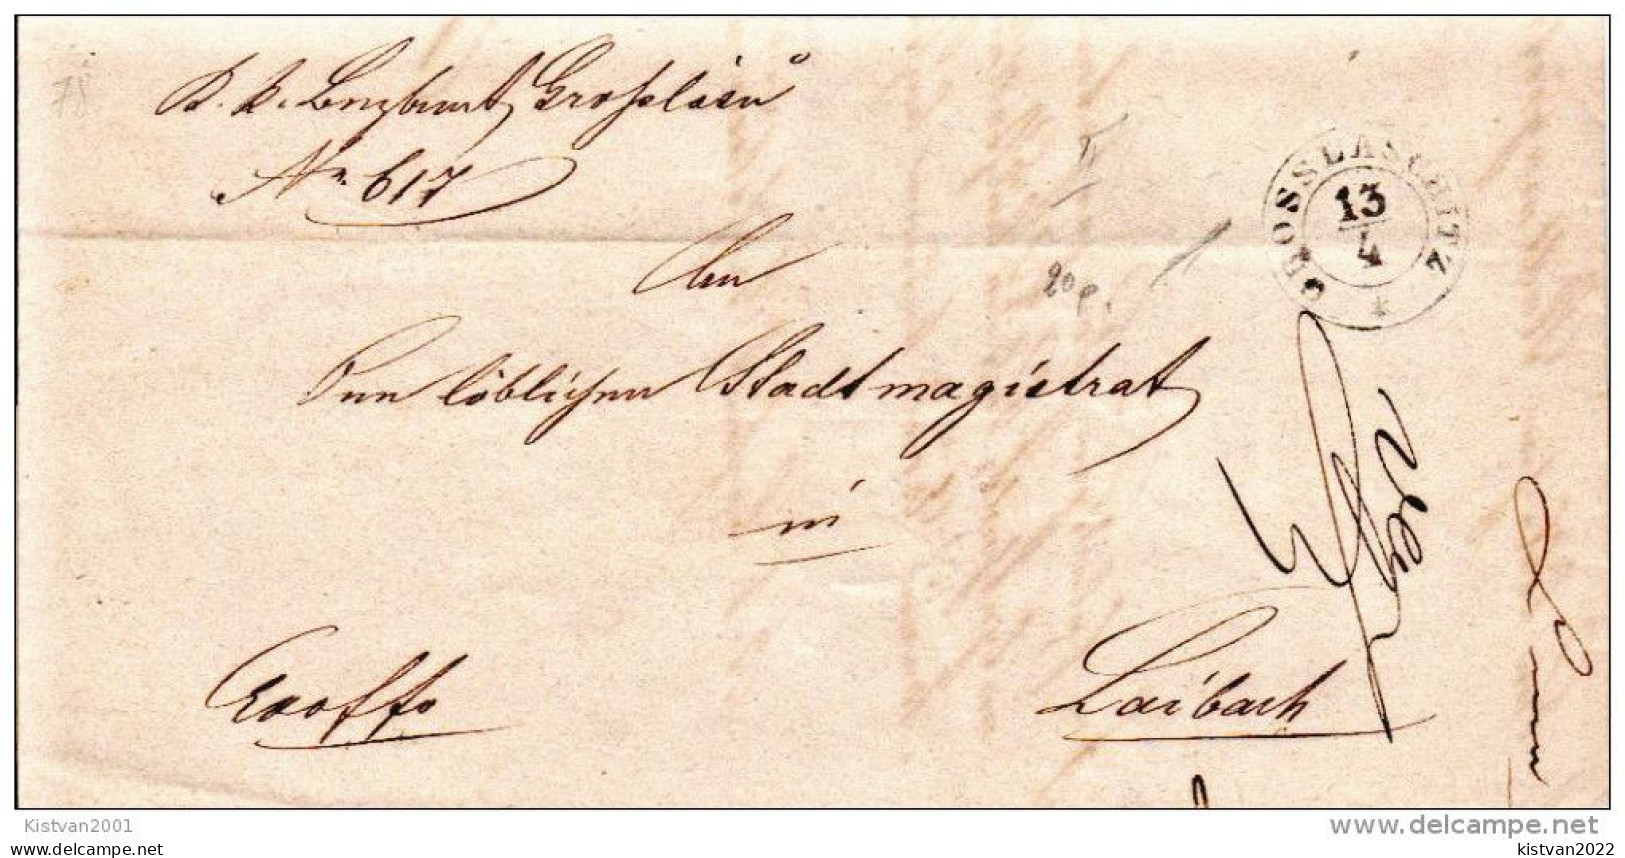 K. K. Bezirksamt Großlaschitz
Nr. 617
GROSSLASCHITZ
13
4
*
An
den löblichen Stadtmagistrat
20 p.
in
Ex offo
Laibach
Kistvan2001
www.delcampe.net
kistvan2022